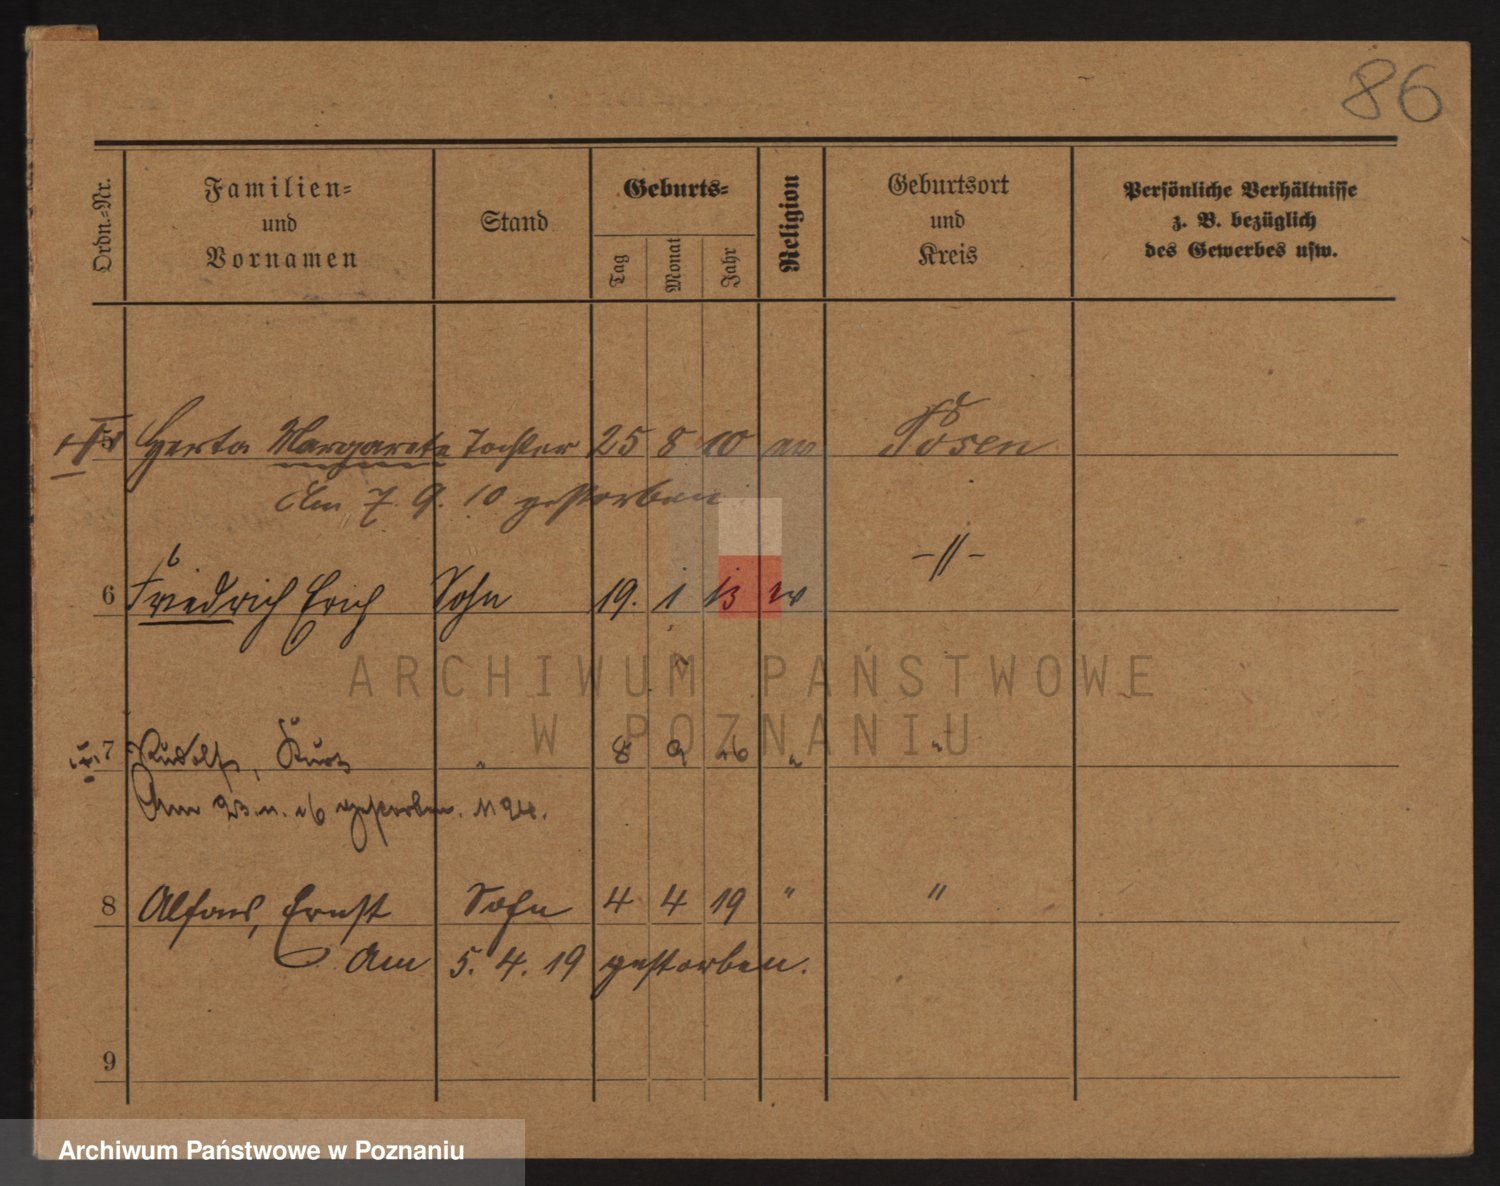 86
Ordn.=Nr.
Familien=
und
Vornamen
Stand
Geburts=
Tag
Monat
Jahr
Religion
Geburtsort
und
Kreis
Persönliche Verhältnisse
z. B. bezüglich
des Gewerbes usw.
5 Herta Margarete Tochter 25 8 10 ev Posen
Am 7. 9. 10 gestorben
6 Friedrich Erich Sohn 19. 1 13 ev -//-
ARCHIWUM PAŃSTWOWE
W POZNANIU
7 Rudolf, Kurt " 8 9 16 " "
Am 23. 11. 16 gestorben.
8 Alfons, Ernst Sohn 4 4 19 " "
Am 5. 4. 19 gestorben.
9
Archiwum Państwowe w Poznaniu